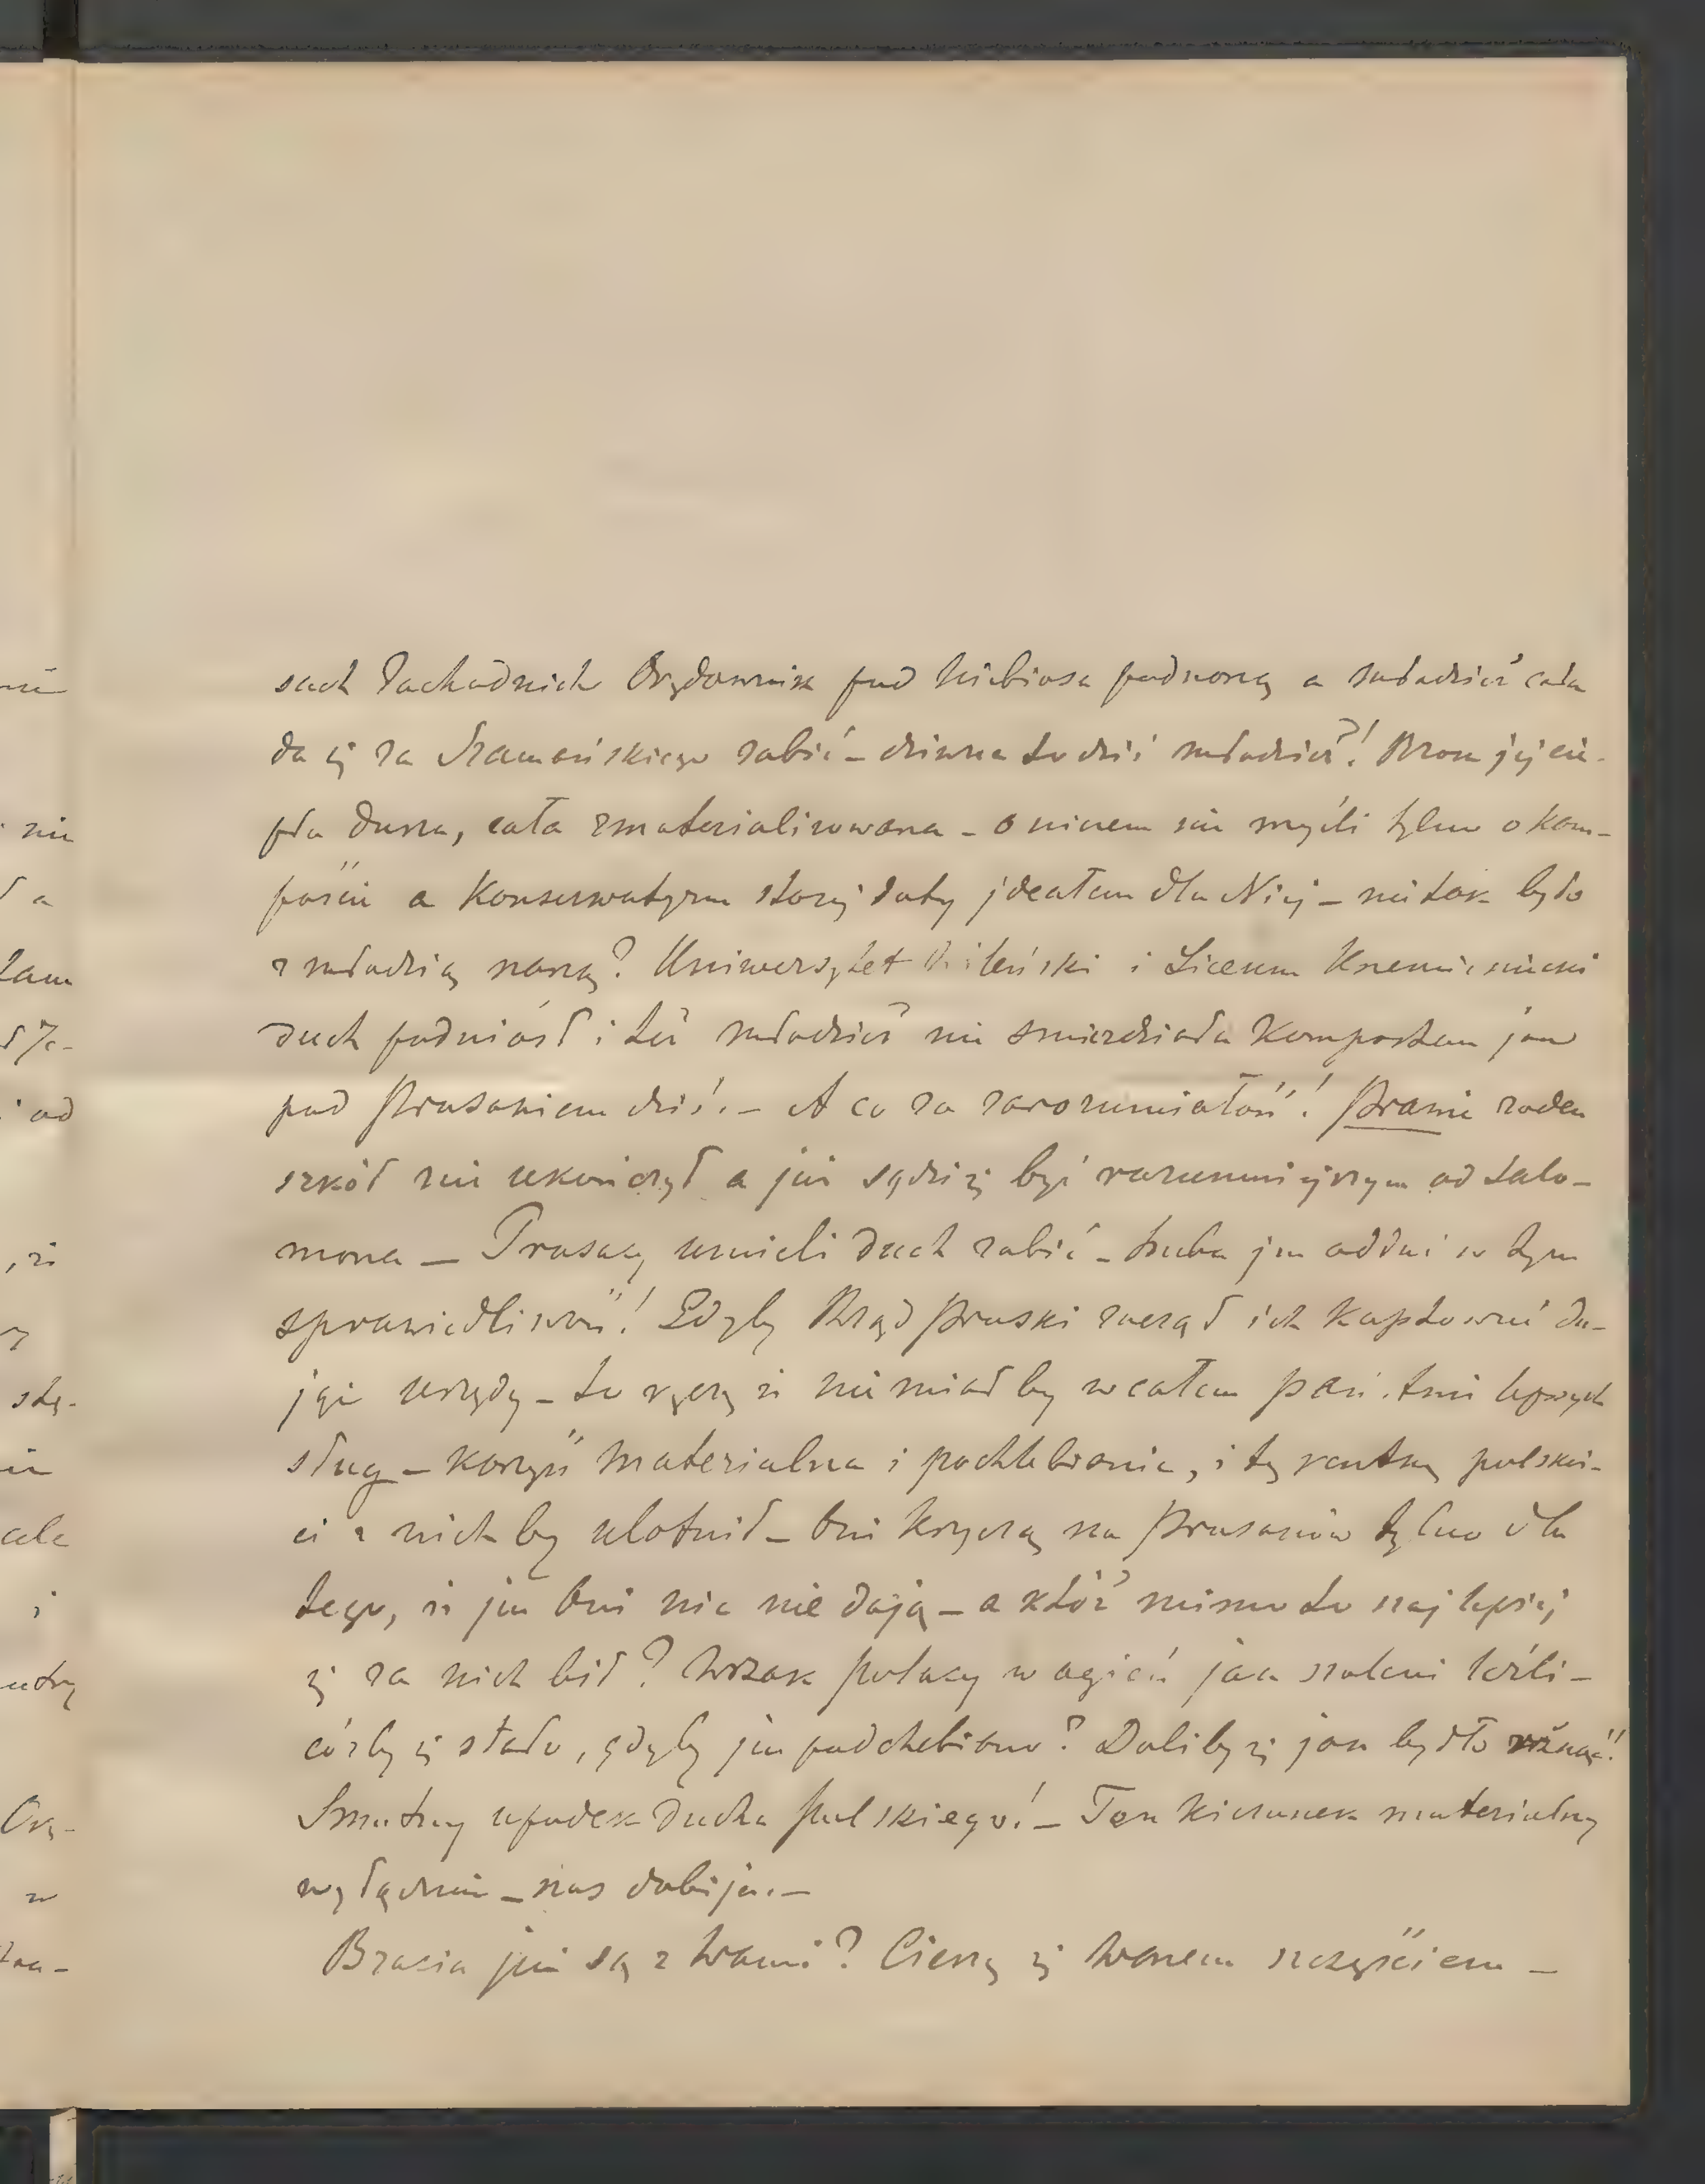 sach Zachodnich Orędownik pod niebiosa podnoszą a młodzież cała
da się za Szamańskiego zabić – dziwna to dziś młodzież?! Proza jej cie-
pła dusza, cała zmaterializowana – o niczem nie myśli tylko o kom-
poście a Konserwatyzm starej daty jdeałem dla Niej – nie tak było
z młodzią naszą? Uniwersytet Wileński i Liceum Krzemienieckie
duch podniósł i też młodzież nie śmierdziała Kompostem jak
pod Prusakiem dziś. – A co za zarozumiałość! Prawie żaden
szkół nie ukończył a już sądzi się być rozumniejszym od Salo-
mona – Prusacy umieli duch zabić – trzeba jm oddać w tym
sprawiedliwość! Gdyby Rząd pruski zaczął ich Kaptować da-
jąc urzędy – to ręczę iż nie miałby w całem pań.twie lepszych
sług – korzyść materialna i pochlebianie, i tę resztkę polsko-
ci z nich by ulotnił – Oni krzyczą na Prusaków tylko dla
tego, iż jm Oni nic nie dają – a któż mimo to najlepiej
się za nich bił? Wszak polacy w ogień jak szaleni leźli –
cóżby się stało, gdyby jm podchlebiano? Daliby się jak bydło rżnąć!
Smutny upadek ducha polskiego! – Ten kierunek materialny
wyłącznie – nas dobija. –
Bracia już są z Wami? Cieszę się Waszem szczęściem –